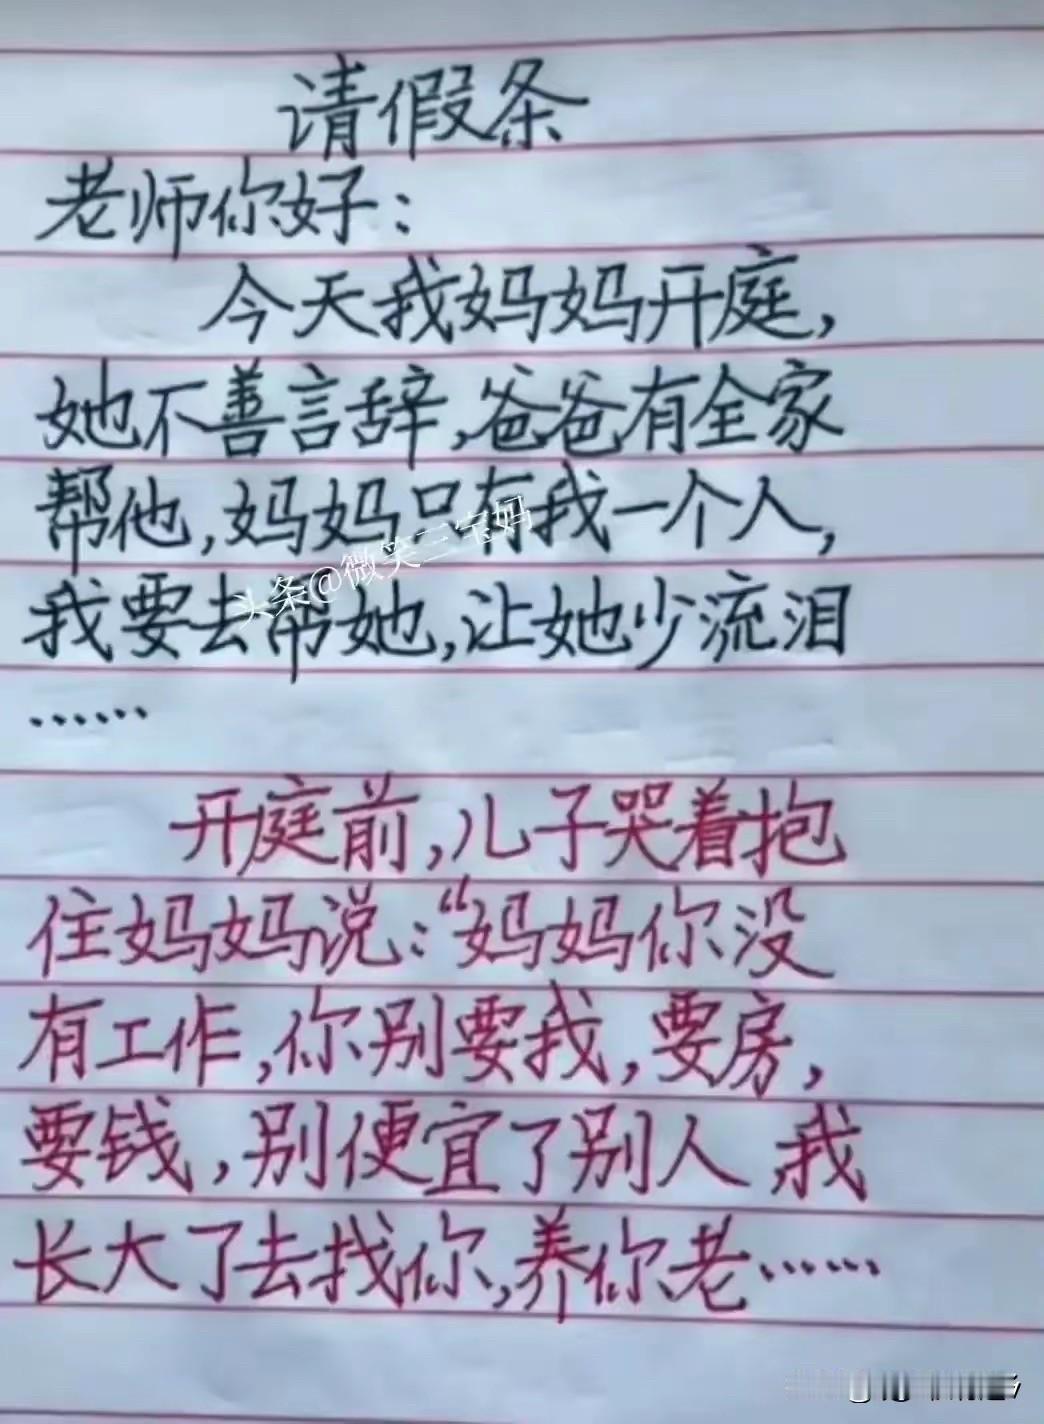 请假条
老师你好：
今天我妈妈开庭，
她不善言辞，爸爸有全家
帮他，妈妈只有我一个人，
我要去帮她，让她少流泪
……
头条@微笑三宝妈
开庭前，儿子哭着抱
住妈妈说：“妈妈你没
有工作，你别要我，要房，
要钱，别便宜了别人，我
长大了去找你，养你老……